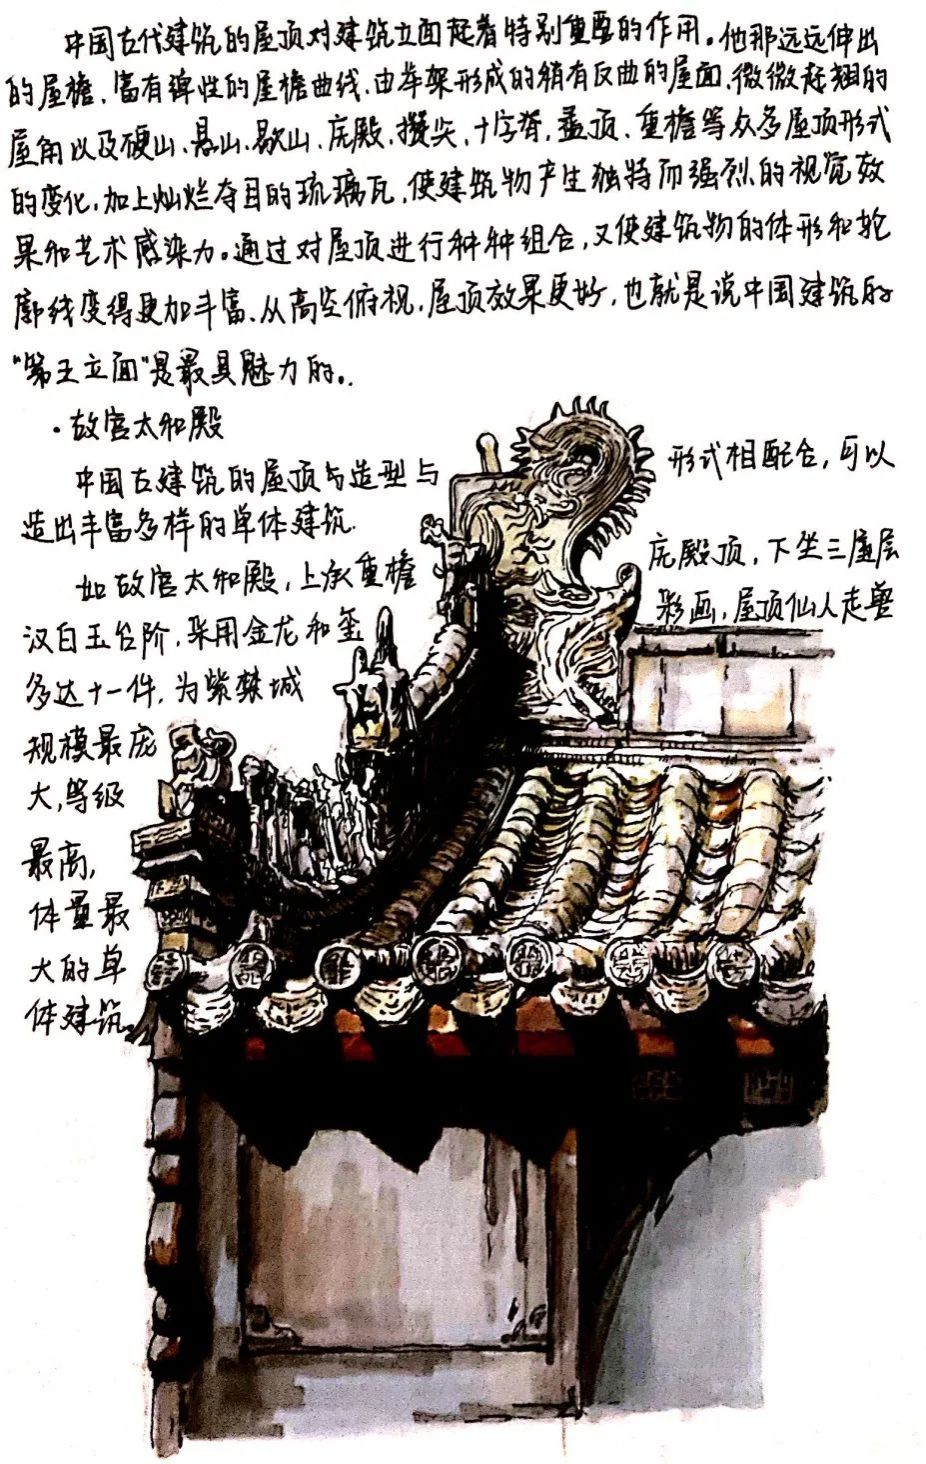 中国古代建筑的屋顶对建筑立面起着特别重要的作用。他那远远伸出
的屋檐、富有弹性的屋檐曲线、由举架形成的稍有反曲的屋面、微微起翘的
屋角以及硬山、悬山、歇山、庑殿、攒尖、十字脊、盝顶、重檐等众多屋顶形式
的变化,加上灿烂夺目的琉璃瓦,使建筑物产生独特而强烈的视觉效
果和艺术感染力。通过对屋顶进行种种组合,又使建筑物的体形和轮
廓线变得更加丰富。从高空俯视,屋顶效果更好,也就是说中国建筑的
“第五立面”是最具魅力的。
·故宫太和殿
中国古建筑的屋顶与造型与 形式相配合,可以
造出丰富多样的单体建筑.
如故宫太和殿,上承重檐 庑殿顶,下坐三层
汉白玉台阶,采用金龙和玺 彩画,屋顶仙人走兽
多达十一件,为紫禁城
规模最庞
大,等级
最高,
体量最
大的单
体建筑。